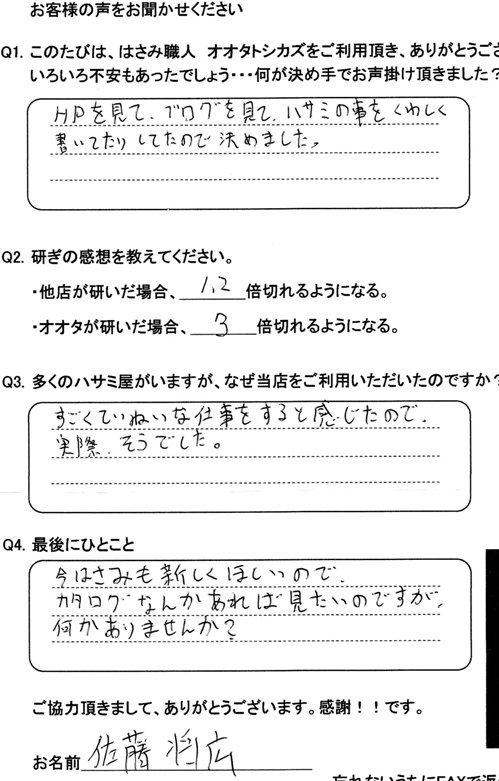 お客様の声をお聞かせください
Q1. このたびは、はさみ職人 オオタトシカズをご利用頂き、ありがとうござ
いろいろ不安もあったでしょう・・・何が決め手でお声掛け頂きました?
HPを見て、ブログを見て、ハサミの事をくわしく
書いてたりしてたので決めました。
Q2. 研ぎの感想を教えてください。
・他店が研いだ場合、1,2倍切れるようになる。
・オオタが研いだ場合、3倍切れるようになる。
Q3. 多くのハサミ屋がいますが、なぜ当店をご利用いただいたのですか?
すごくていねいな仕事をすると感じたので、
実際、そうでした。
Q4. 最後にひとこと
今はさみも新しくほしいので、
カタログなんかあれば見たいのですが、
何かありませんか?
ご協力頂きまして、ありがとうございます。感謝!!です。
お名前 佐藤 将広
忘れないうちにFAXで返